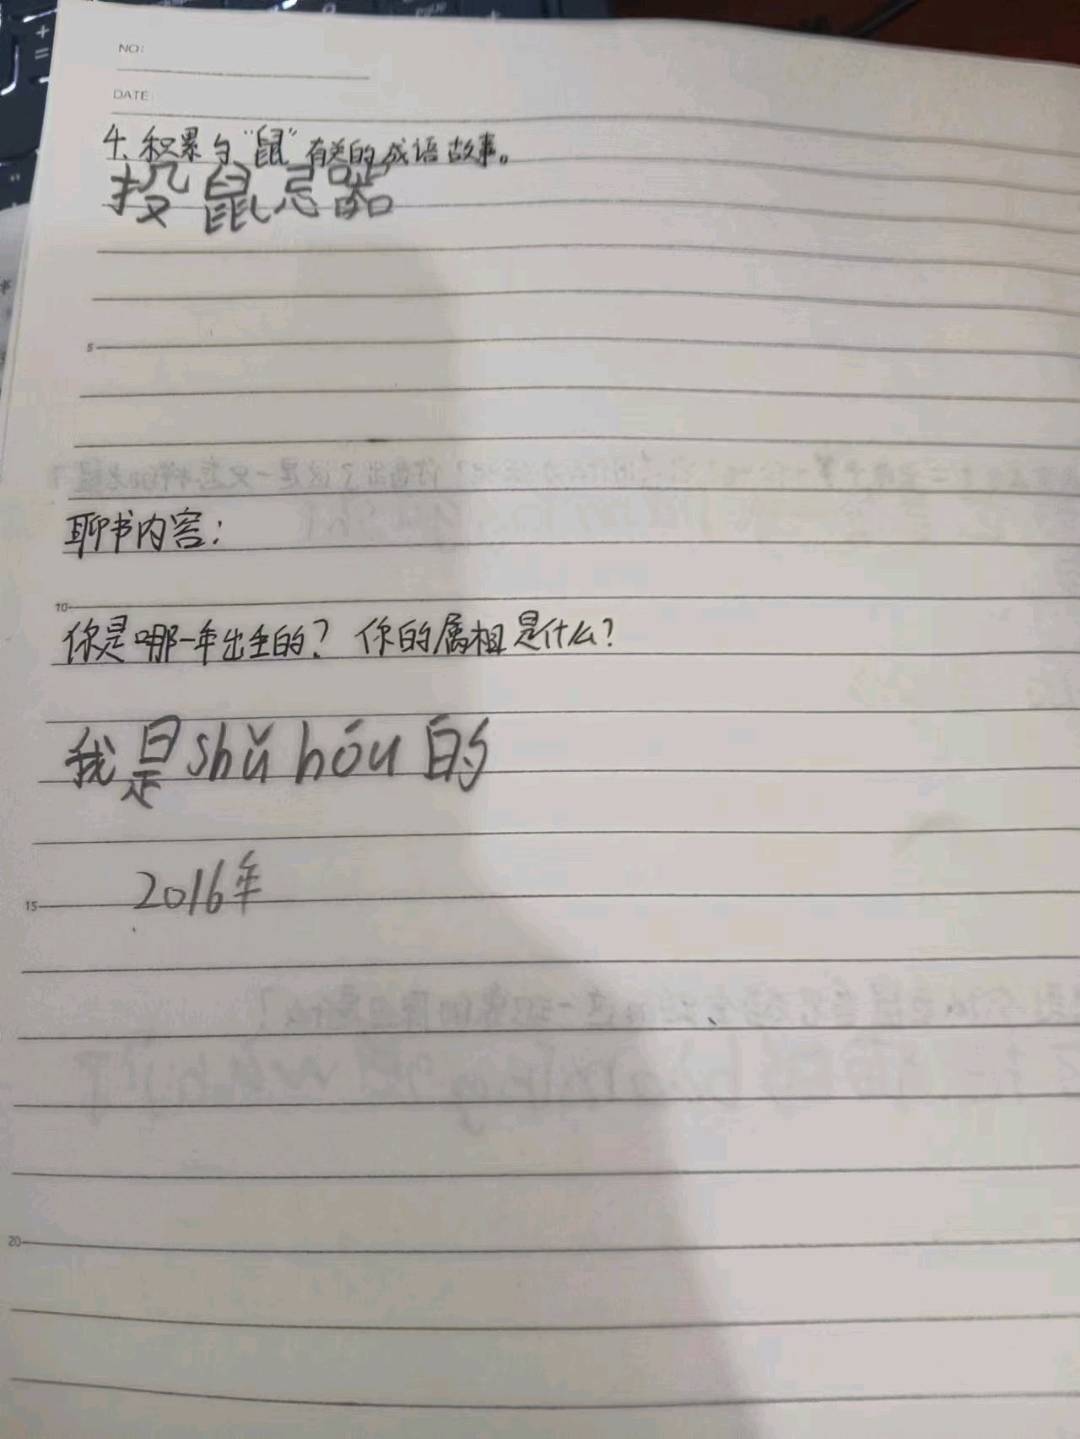 NO:
DATE:
4. 积累与“鼠”有关的成语故事。
投鼠忌器
5
聊书内容:
10
你是哪一年出生的? 你的属相是什么?
我是shǔ hóu的
2016年
15
20